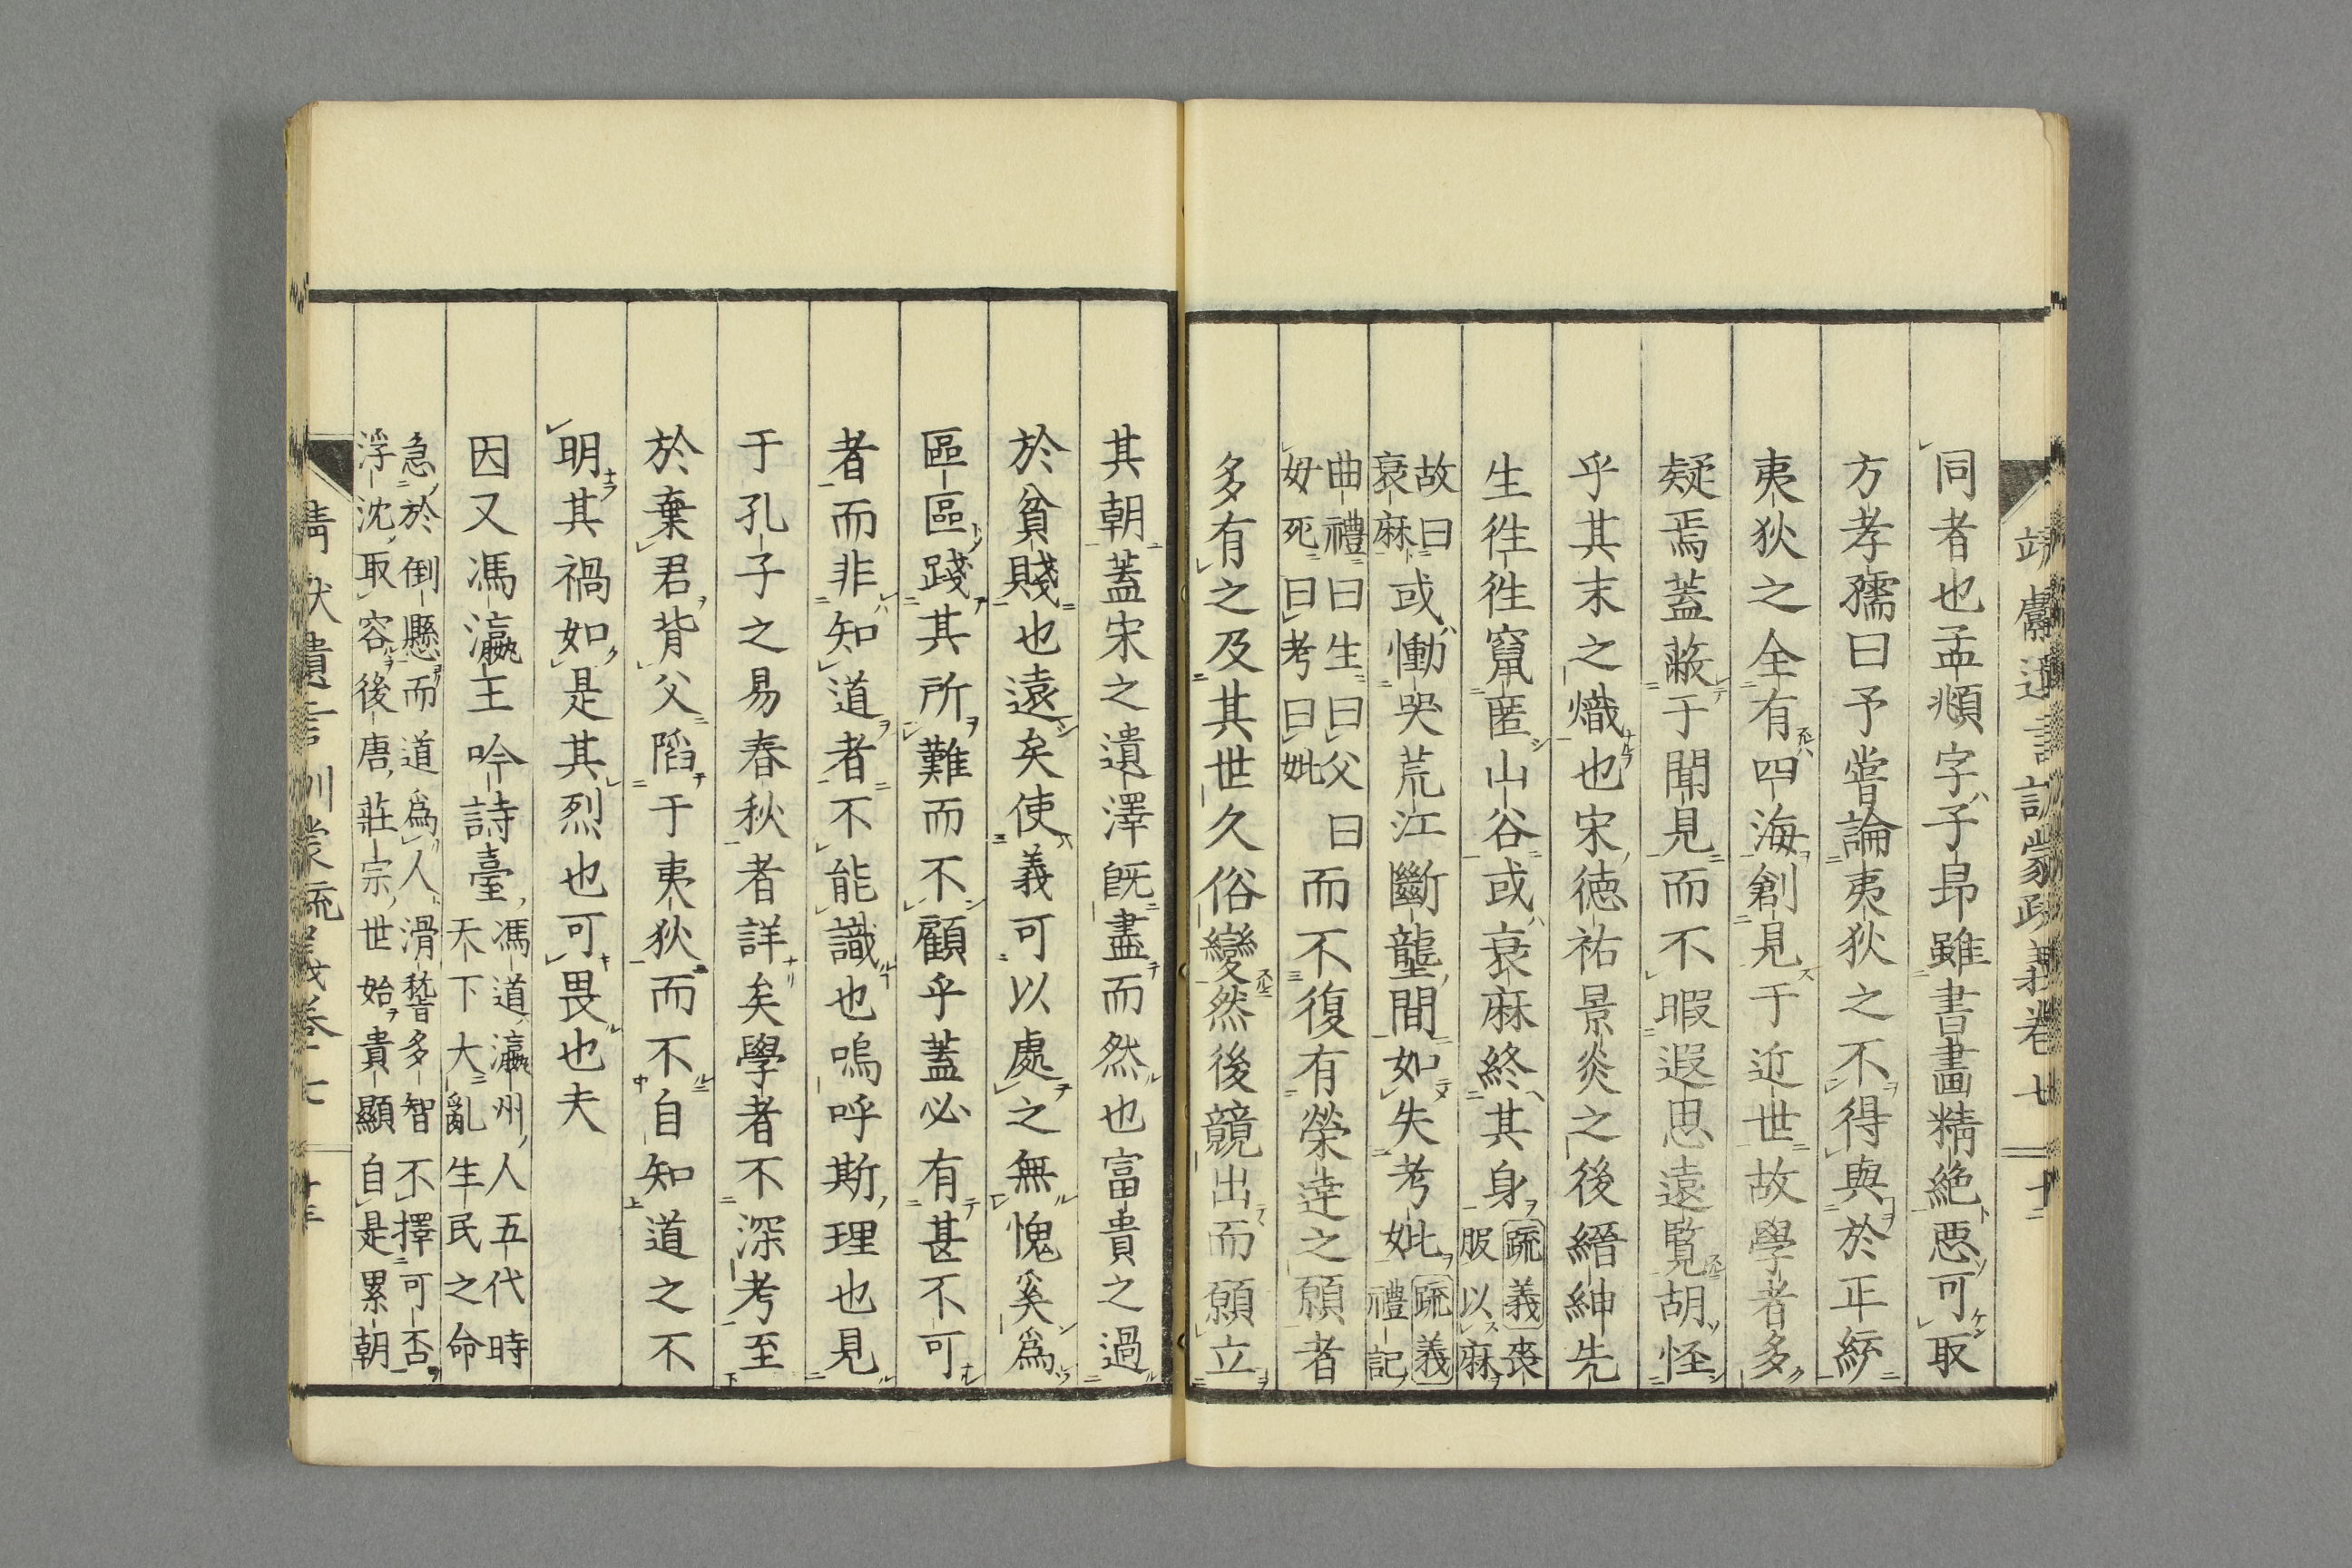 同者也孟頫字子昂雖書畫精絶惡可取
方孝孺曰予嘗論夷狄之不得與於正統
夷狄之全有四海創見于近世故學者多
疑焉蓋蔽于聞見而不暇遐思遠覧胡怪
乎其末之熾也宋徳祐景炎之後縉紳先
生徃徃竄匿山谷或衰麻終其身疏義喪
服以麻
故曰
衰麻或慟哭荒江斷壟間如失考妣疏義
禮記
曲禮曰生曰父曰
母死曰考曰妣而不復有榮逹之願者
多有之及其世久俗變然後競出而願立
其朝蓋宋之遺澤既盡而然也富貴之過
於貧賤也遠矣使義可以處之無愧奚爲
區區踐其所難而不顧乎蓋必有甚不可
者而非知道者不能識也嗚呼斯理也見
于孔子之易春秋者詳矣學者不深考至
於棄君背父陷于夷狄而不自知道之不
明其禍如是其烈也可畏也夫
因又馮瀛王吟詩臺馮道瀛州人五代時
天下大亂生民之命
急於倒懸而道爲人滑稽多智不擇可否
浮沈取容後唐莊宗世始貴顯自是累朝